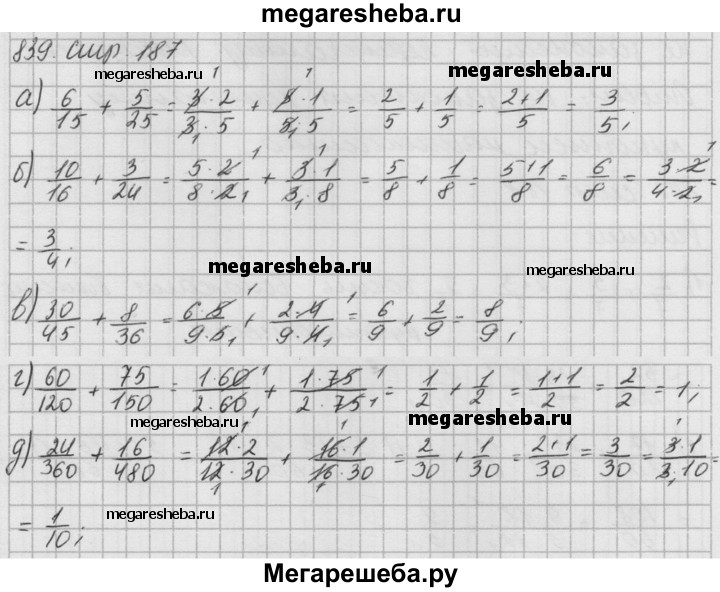 megaresheba.ru
839. стр. 187
megaresheba.ru megaresheba.ru
а) 6/15 + 5/25 = 3·2/3·5 + 5·1/5·5 = 2/5 + 1/5 = 2+1/5 = 3/5;
б) 10/16 + 3/24 = 5·2/8·2 + 3·1/3·8 = 5/8 + 1/8 = 5+1/8 = 6/8 = 3·2/4·2 =
= 3/4;
megaresheba.ru megaresheba.ru
в) 30/45 + 8/36 = 6·5/9·5 + 2·4/9·4 = 6/9 + 2/9 = 8/9;
г) 60/120 + 75/150 = 1·60/2·60 + 1·75/2·75 = 1/2 + 1/2 = 1+1/2 = 2/2 = 1;
megaresheba.ru megaresheba.ru
д) 24/360 + 16/480 = 12·2/12·30 + 16·1/16·30 = 2/30 + 1/30 = 2+1/30 = 3/30 = 3·1/3·10 =
= 1/10;
megaresheba.ru megaresheba.ru
Мегарешеба.ру